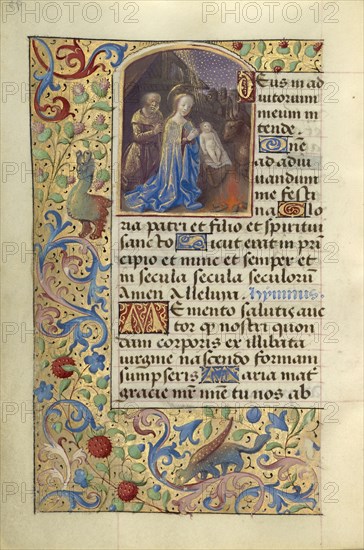 Deus in ad
iutorium
meum in
tende.
Dne
ad adiu
uandum
me festi
na Glo
ria patri et filio et spiritui
sancto Sicut erat in pri
cipio et nunc et semper et
in secula seculorum
Amen Alleluya. hympnus.
Memento salutis auc
tor qp nostri quon
cam corporis ex illibata
uirgine nascendo formam
sumpseris Maria mat
gracie mr mie tu nos ab